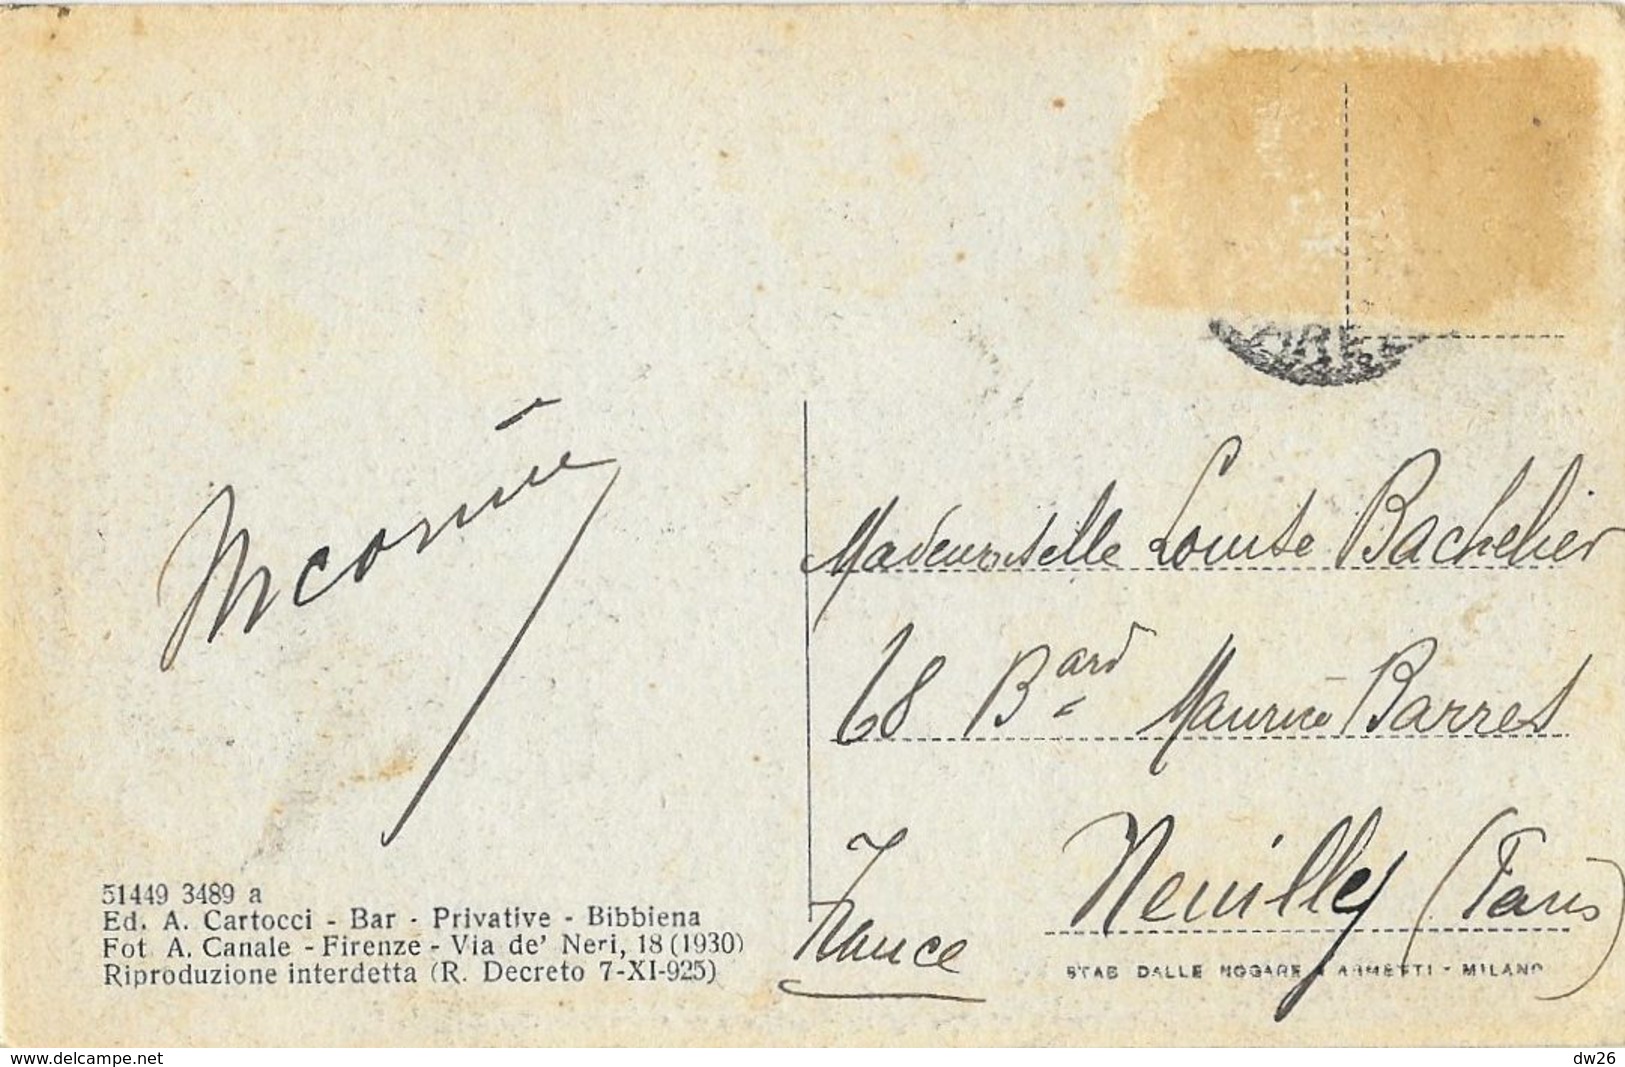 Mademoiselle Louise Bachelier
68 Bard Maurice Barres
Neuilly (Paris)
France
51449 3489 a
Ed. A. Cartocci - Bar - Privative - Bibbiena
Fot A. Canale - Firenze - Via de' Neri, 18 (1930)
Riproduzione interdetta (R. Decreto 7-XI-925)
STAB DALLE NOGARE & ARMETTI - MILANO
www.delcampe.net
dw26